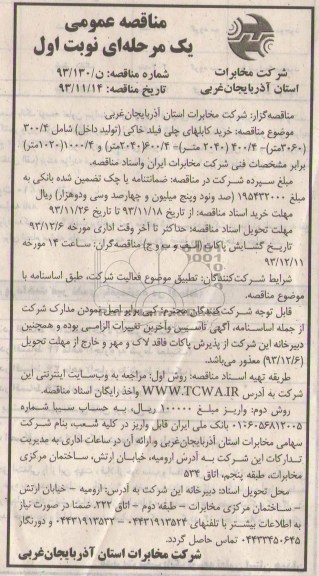 مناقصه عمومی
یک مرحله‌ای نوبت اول
شرکت مخابرات
استان آذربایجان‌غربی
شماره مناقصه: ن/۹۳/۱۳۰
تاریخ مناقصه: ۹۳/۱۱/۱۴
مناقصه‌گزار: شرکت مخابرات استان آذربایجان‌غربی
موضوع مناقصه: خرید کابلهای چلی فیلد خاکی (تولید داخل) شامل ۳۰۰/۴
(۳۰۶۰متر)- ۴۰۰/۴ (۲۰۴۰ متر)- ۶۰۰/۴(۲۰۴۰متر) و ۱۰۰۰/۴(۱۰۲۰متر)
برابر مشخصات فنی شرکت مخابرات ایران واسناد مناقصه.
مبلغ سپرده شرکت در مناقصه: ضمانتنامه یا چک تضمین شده بانکی به
مبلغ ۱۹۵۴۳۲۰۰۰ (صد ونود وپنج میلیون و چهارصد وسی ودوهزار) ریال
مهلت خرید اسناد مناقصه: از تاریخ ۹۳/۱۱/۱۸ تا تاریخ ۹۳/۱۱/۲۶
مهلت تحویل اسناد مناقصه: حداکثر تا آخر وقت اداری مورخه ۹۳/۱۲/۶
تاریخ گشایش پاکات (الف و ب و ج) مناقصه‌گران: ساعت ۱۴ مورخه
۹۳/۱۲/۱۱
شرایط شرکت‌کنندگان: تطبیق موضوع فعالیت شرکت، طبق اساسنامه با
موضوع مناقصه.
قابل توجه شرکت‌کنندگان محترم: کپی برابر اصل نمودن مدارک شرکت
از جمله اساسنامه، آگهی تاسیس وآخرین تغییرات الزامی بوده و همچنین
دبیرخانه این شرکت از پذیرش پاکات فاقد لاک و مهر و خارج از مهلت تحویل
(۹۳/۱۲/۶) معذور می‌باشد.
طریقه تهیه اسناد مناقصه: روش اول: مراجعه به وب‌سایت اینترنتی این
شرکت به آدرس WWW.TCWA.IR واخذ رایگان اسناد مناقصه.
روش دوم: واریز مبلغ ۱۰۰۰۰۰ ریال، به حساب سیبا شماره
۰۱۰۶۰۵۶۸۱۲۰۰۵ بانک ملی ایران قابل واریز در کلیه شعب، بنام شرکت
سهامی مخابرات استان آذربایجان‌غربی و ارائه آن در ساعات اداری به مدیریت
تدارکات این شرکت به آدرس ارومیه، خیابان ارتش، ساختمان مرکزی
مخابرات، طبقه پنجم، اتاق ۵۳۴
محل تحویل اسناد: دبیرخانه این شرکت به آدرس: ارومیه - خیابان ارتش
- ساختمان مرکزی مخابرات - طبقه دوم - اتاق ۲۲۲. ضمنا در صورت نیاز
به اطلاعات بیشتر با تلفنهای ۰۴۴۳۱۹۱۳۵۲۴ - ۰۴۴۳۱۹۱۳۵۳۲ و دورنگار
۰۴۴۳۳۴۵۰۶۴۵ تماس حاصل گردد.
شرکت مخابرات استان آذربایجان‌غربی